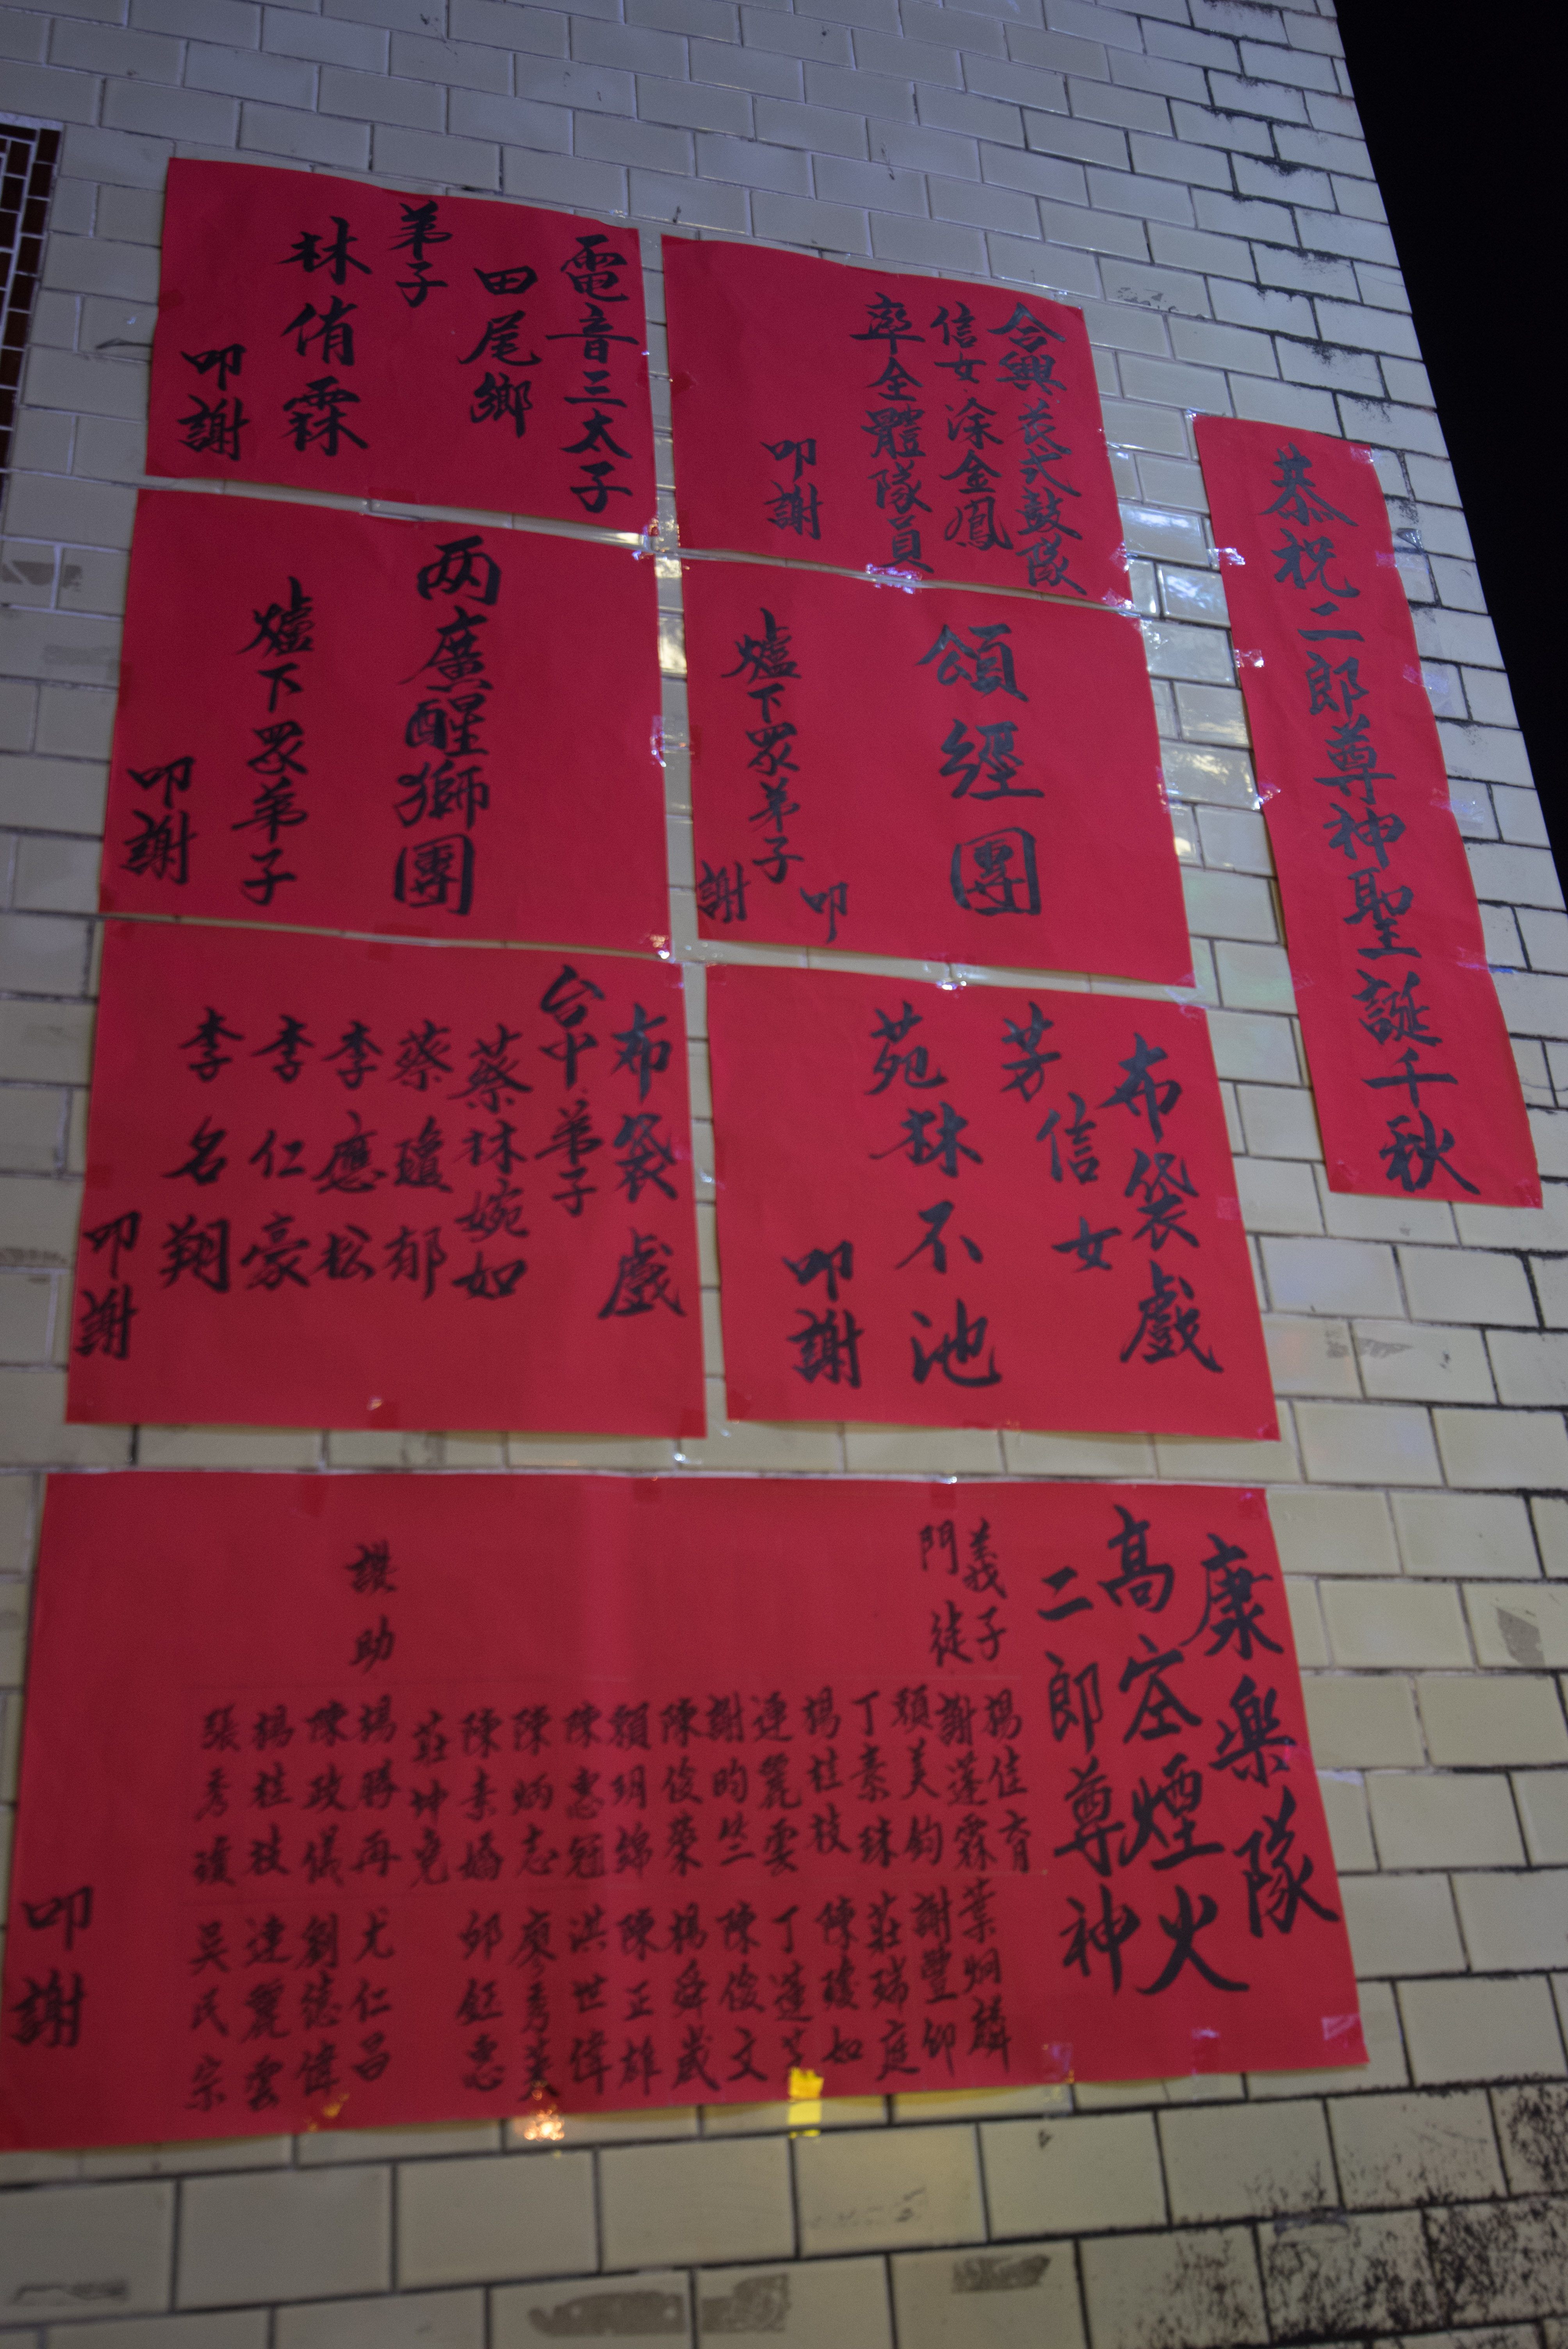 恭祝二郎尊神聖誕千秋
合興花式鼓隊
信女涂金鳳
率全體隊員
叩謝
電音三太子
田尾鄉
弟子
林俏霖
叩謝
頌經團
爐下眾弟子
叩謝
两廣醒獅團
爐下眾弟子
叩謝
布袋戲
信女
芳苑林不池
叩謝
布袋戲
台中弟子
蔡林婉如
蔡瓊郁
李應松
李仁豪
李名翔
叩謝
康樂隊
高空煙火
二郎尊神
義子
門徒
楊佳育
葉炯麟
謝蓮霖
謝豐仰
顏美鈞
莊瑞庭
丁素珠
陳瓊如
楊桂枝
丁蓮
連麗雲
陳俊文
謝昀竺
楊舜崴
陳俊榮
陳正雄
賴玥綿
洪世偉
陳惠冠
廖秀美
陳炳志
邱鈺惠
陳素嬌
莊坤堯
讚助
楊勝再
尤仁昌
陳政儀
劉德偉
楊桂枝
連麗雲
張秀瓊
吳氏宗
叩謝